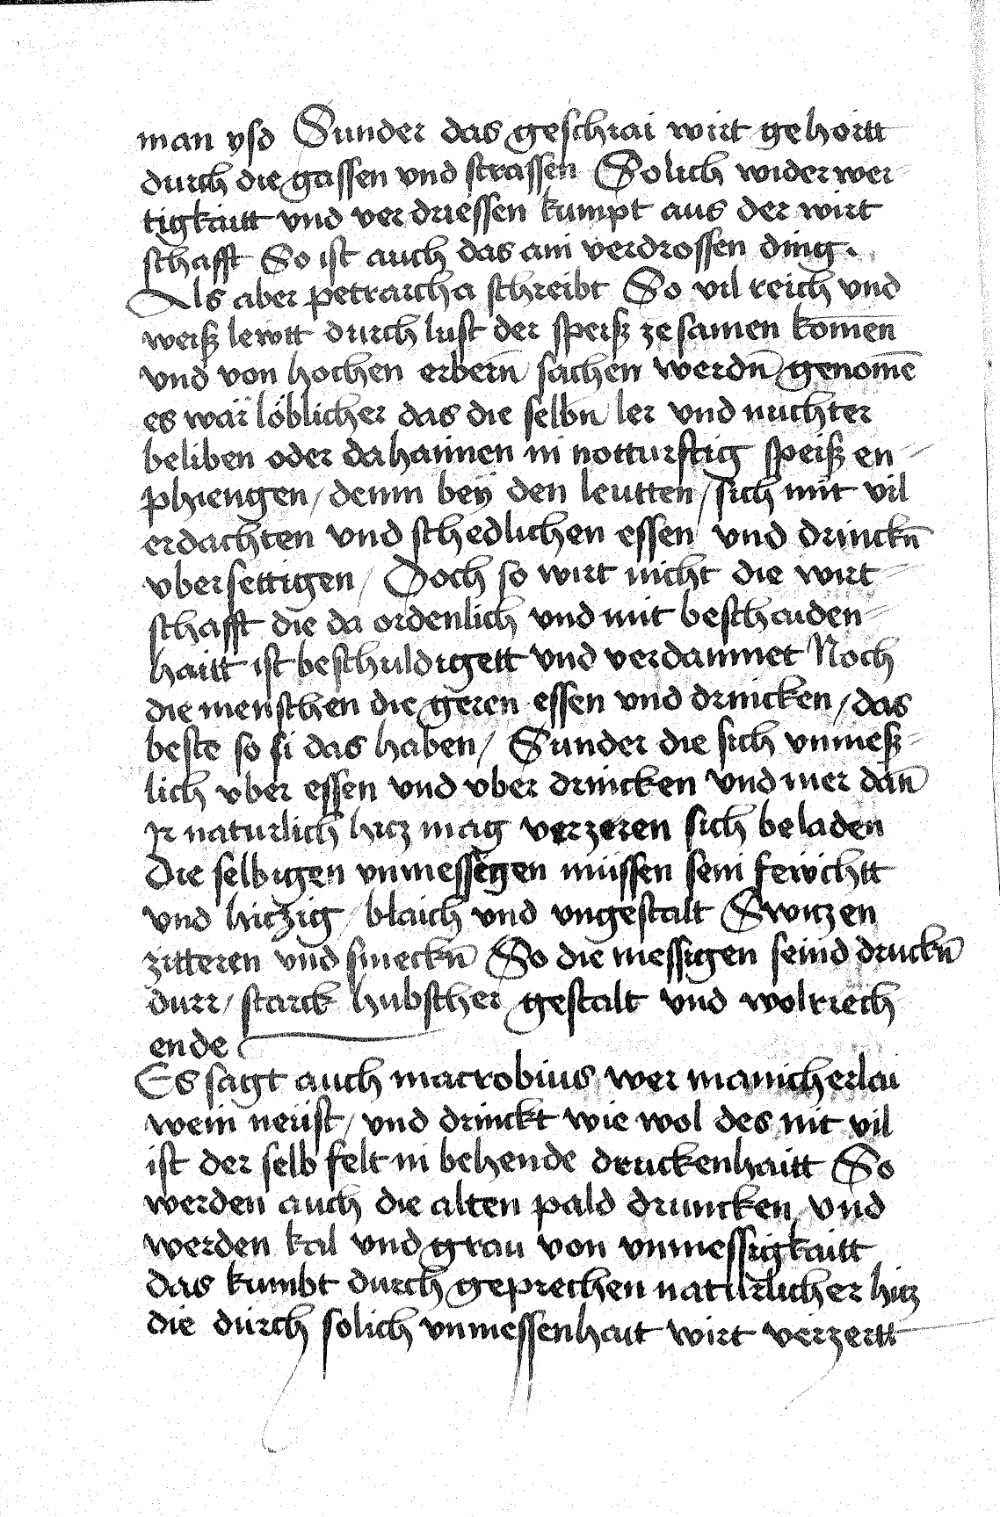 man ysd Sunder das geschrai wirt gehortt
durch die gassen vnd strassen Solich wider wer-
tigkaitt vnd verdriessen kumpt aus der wirt
schafft So ist auch das ain verdrossen ding.
Als aber petrarcha schreibt So vil reich vnd
weiß lewtt durch lust der speiß ze samen komēn
vnd von hochen erbern̄ sachen werdn̄ genomē
es wär löblicher das die selbn̄ ler vnd nuchter
beliben oder dahaimen in notturftig speiß en-
phiengen / denn beÿ den leutten / sich mit vil
erdachten vnd schedlichen essen vnd drinckn̄
vbersettigen / Doch so wirt nicht die wirt-
schafft die da ordenlich vnd mit beschaiden-
haitt ist beschuldigett vnd verdammet Noch
die menschen die geren essen vnd drincken / das
beste so si das haben / Sunder die sich vnmeß-
lich vber essen vnd vber drincken vnd mer dan̄
Ir naturlich hicz mag verzeren sich beladen
Die selbigen vnmessigen müssen sein fewchtt
vnd hiczig / blaich vnd vngestalt Switzen
zitteren vnd smeckn̄ So die messigen seind druckn̄
durr / starck hubscher gestalt vnd wolrech-
ende
Es sagt auch macrobius wer manicherlai
wein neüst / vnd drinckt wie wol des nit vil
ist der selb felt in behende druckenhaitt So
werden auch die alten pald druncken vnd
werden kal vnd grau von vnmessigkaitt
das kumbt durch geprechen natürlicher hicz
die durch solich vnmessenhait wirt verzertt